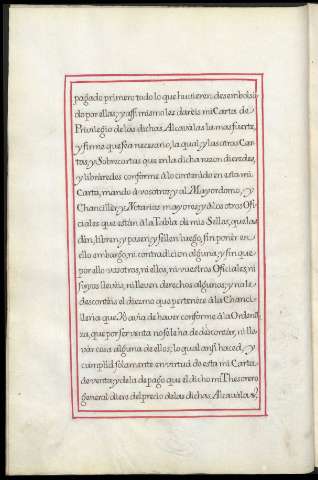 pagado primero todo lo que huuieren desembolsa
do por ellas; y assi mismo les dareis mi Carta de
Privilegio de las dichas Alcavalas la mas fuerte,
y firme que sea necesario, la qual y las otras Car
tas, y Sobrecartas que en la dicha razon dieredes,
y libraredes conforme â lo contenido en esta mi
Carta, mando â vosotros, y al Mayordomo, y
Chanciller, y Notarios mayores, y â los otros Ofi
ciales que están â la Tabla de mis Sellos, que las
dén, libren, y pasen, y sellen luego, sin poner en
ello embargo, ni contradicion alguna, y sin que
por ello vosotros, ni ellos, ni vuestros Oficiales, ni
suyos lleveis, ni lleven derechos algunos, y no le
descontéis el diezmo que pertenece â la Chanci
lleria que Yo avia de haver conforme â la Ordenã
za, que por ser venta no se le ha de descontar, ni lle
var cosa alguna de ellos; lo qual ansi haced, y
cumplid solamente en virtud de esta mi Carta
de venta, y de la de pago que el dicho mi Thesorero
general diere del precio de las dichas Alcavalas